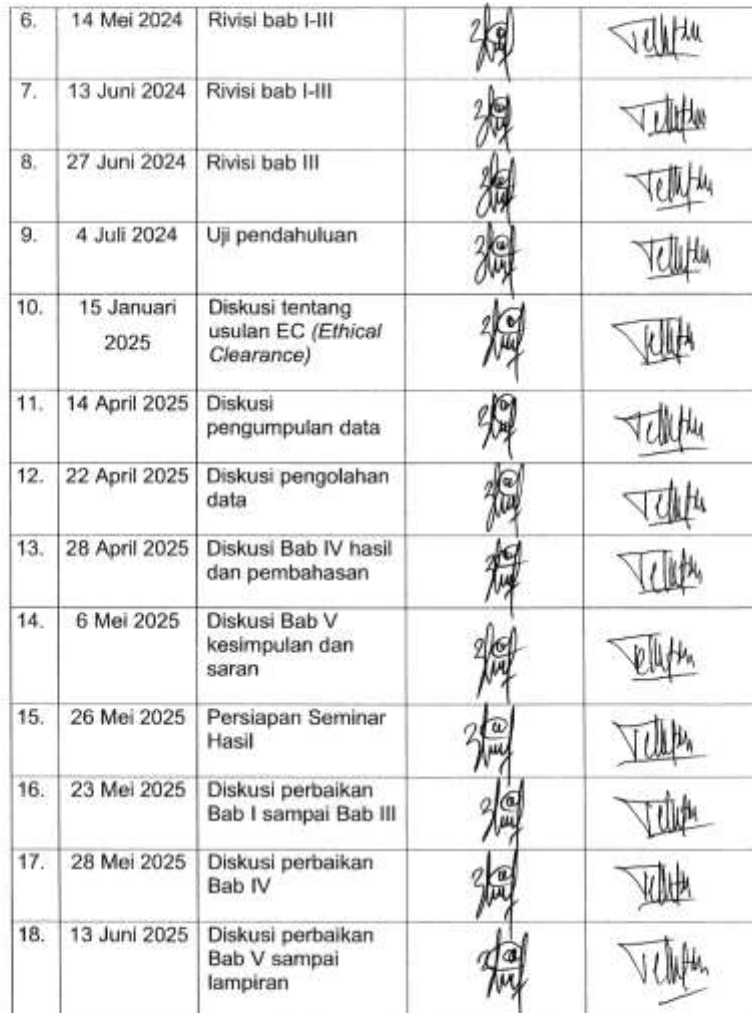 6. 14 Mei 2024 Rivisi bab I-III
7. 13 Juni 2024 Rivisi bab I-III
8. 27 Juni 2024 Rivisi bab III
9. 4 Juli 2024 Uji pendahuluan
10. 15 Januari Diskusi tentang
2025 usulan EC (Ethical
Clearance)
11. 14 April 2025 Diskusi
pengumpulan data
12. 22 April 2025 Diskusi pengolahan
data
13. 28 April 2025 Diskusi Bab IV hasil
dan pembahasan
14. 6 Mei 2025 Diskusi Bab V
kesimpulan dan
saran
15. 26 Mei 2025 Persiapan Seminar
Hasil
16. 23 Mei 2025 Diskusi perbaikan
Bab I sampai Bab III
17. 28 Mei 2025 Diskusi perbaikan
Bab IV
18. 13 Juni 2025 Diskusi perbaikan
Bab V sampai
lampiran